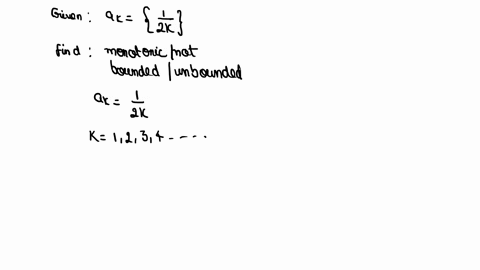 Given: aₖ = {1/2K}
find: monotonic/not
bounded/unbounded
aₖ = 1/2K
K = 1, 2, 3, 4 - - - - -